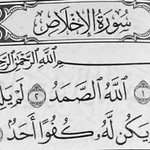 سُورَةُ الإِخْلَاصِ
اللَّهِ الرَّحْمَٰنِ
١ اللَّهُ الصَّمَدُ ٢ لَمْ
يَكُن لَّهُۥ كُفُوًا أَحَدٌۢ